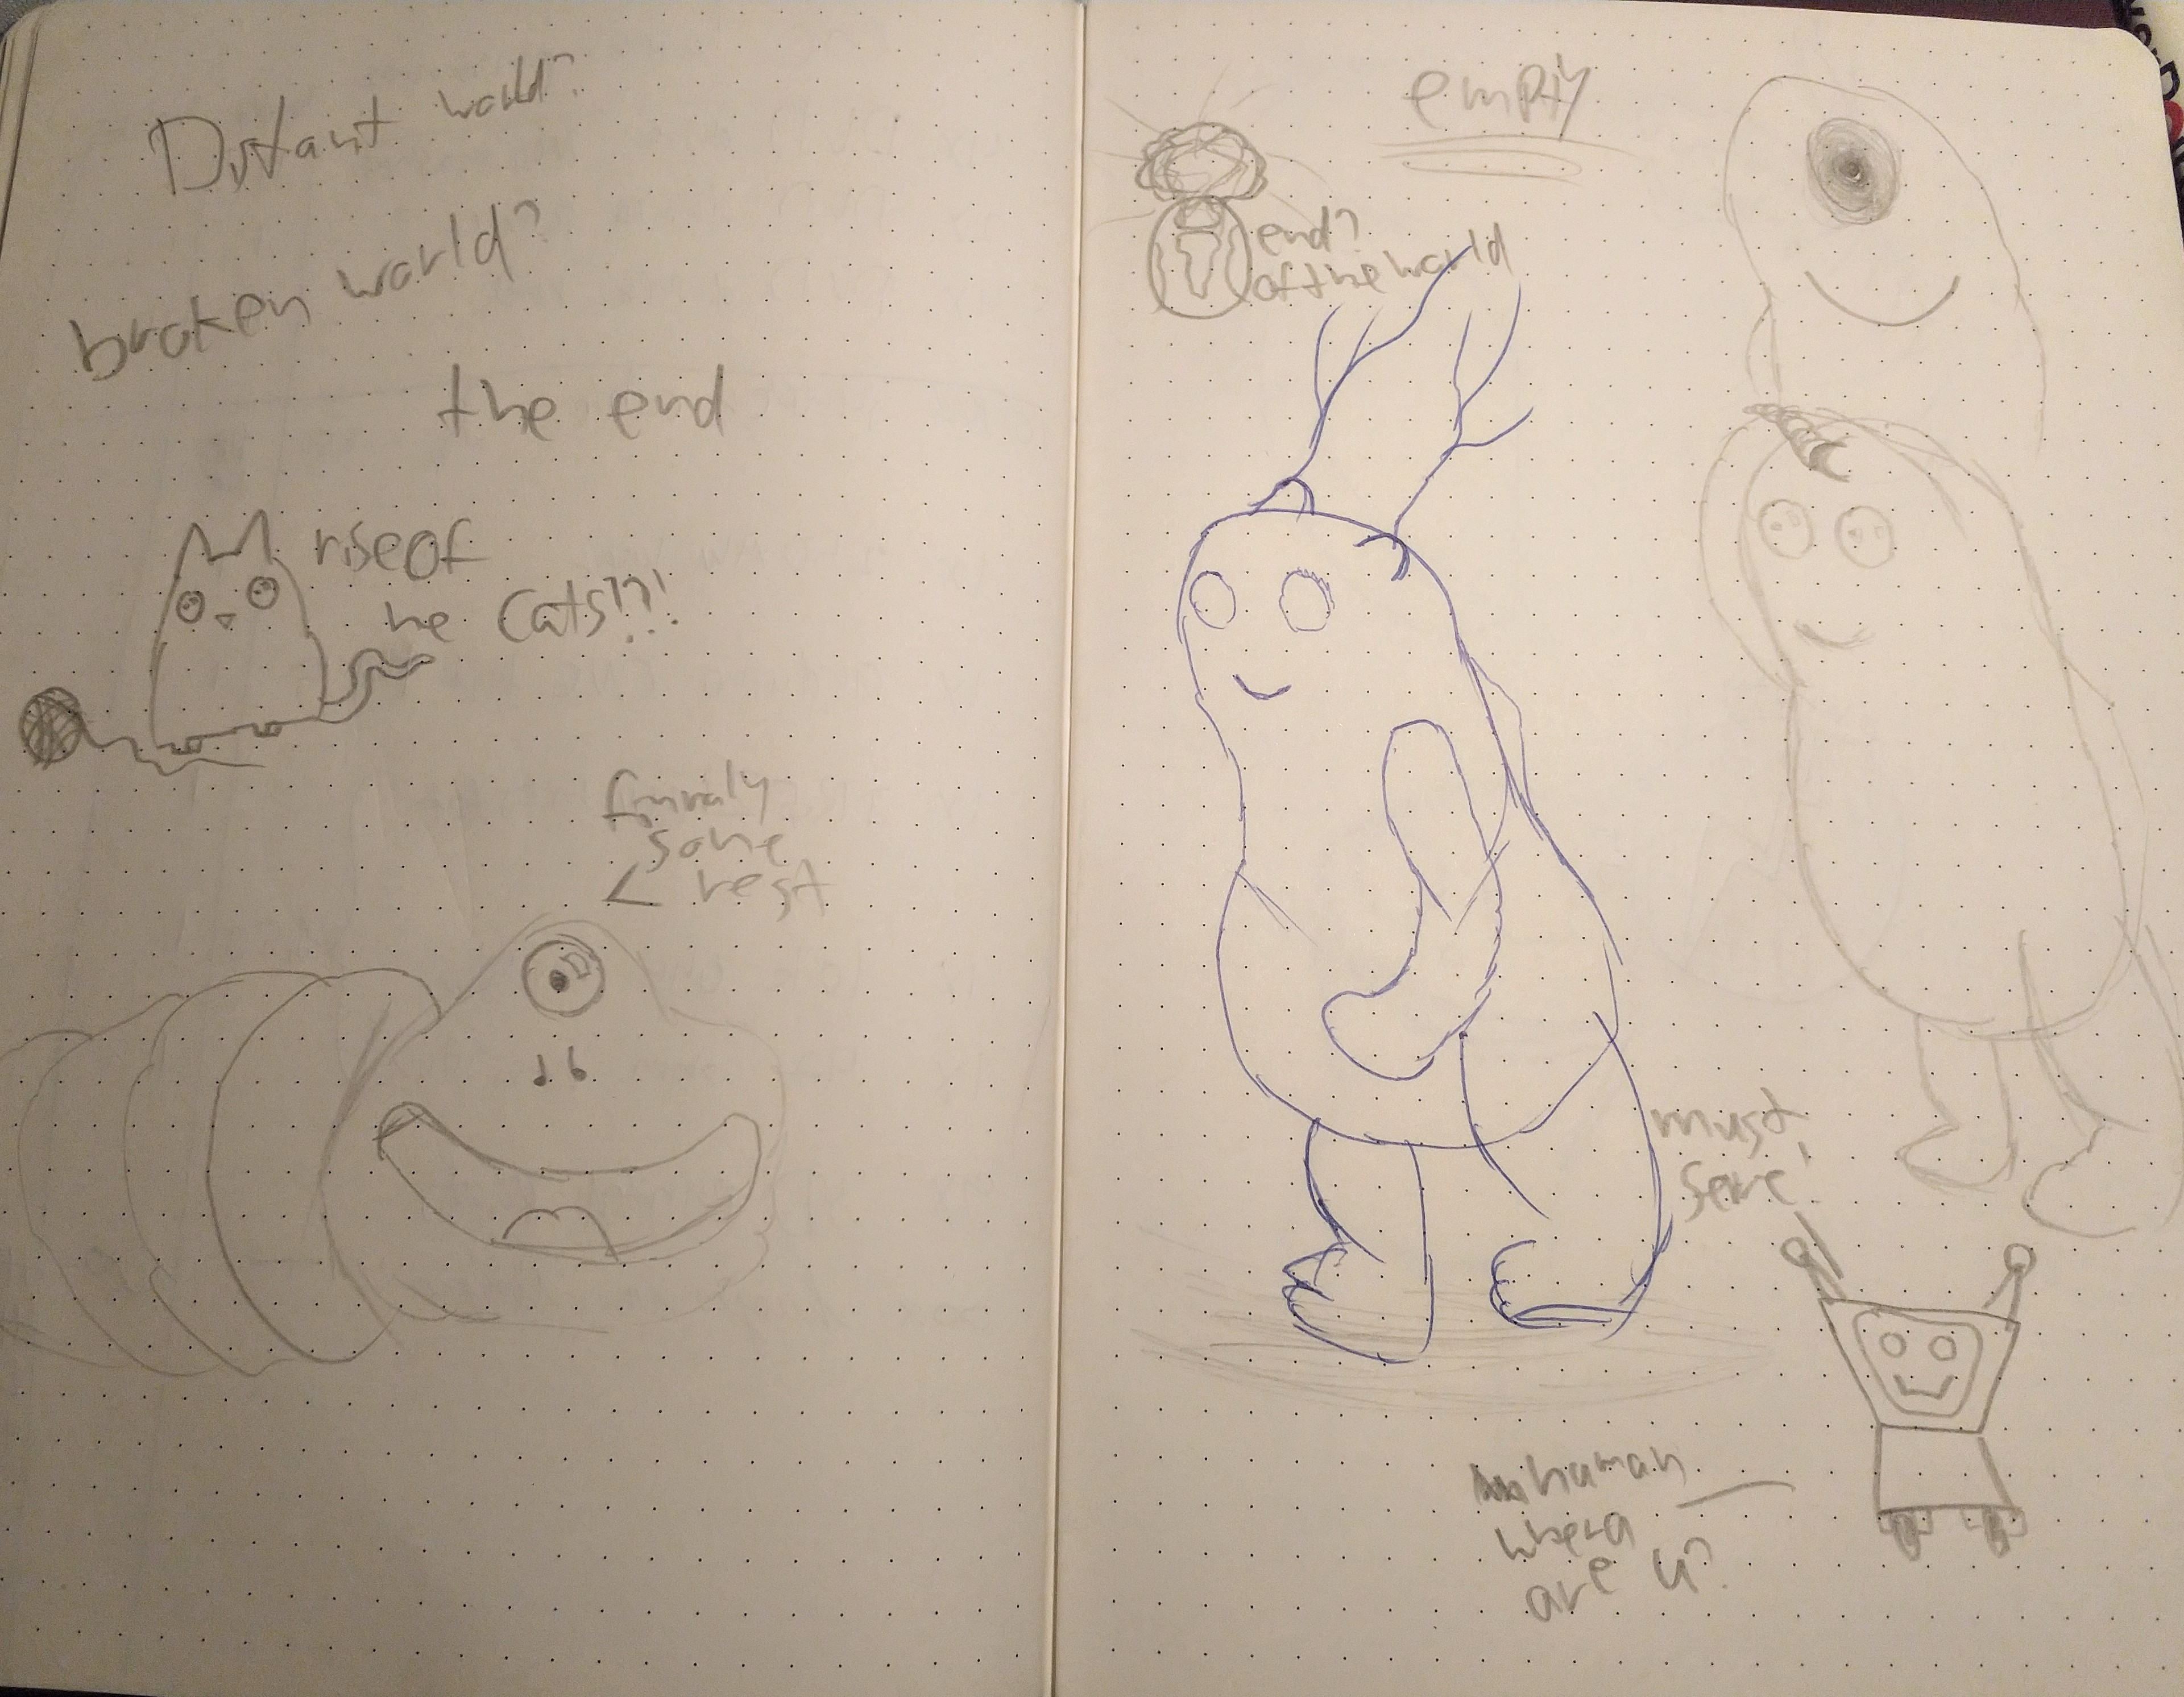 Distant world?
broken world?
the end
rise of
he Cats!?!
finaly
some
< rest
empty
end?
of the world
must
serve!
human
where
are u?